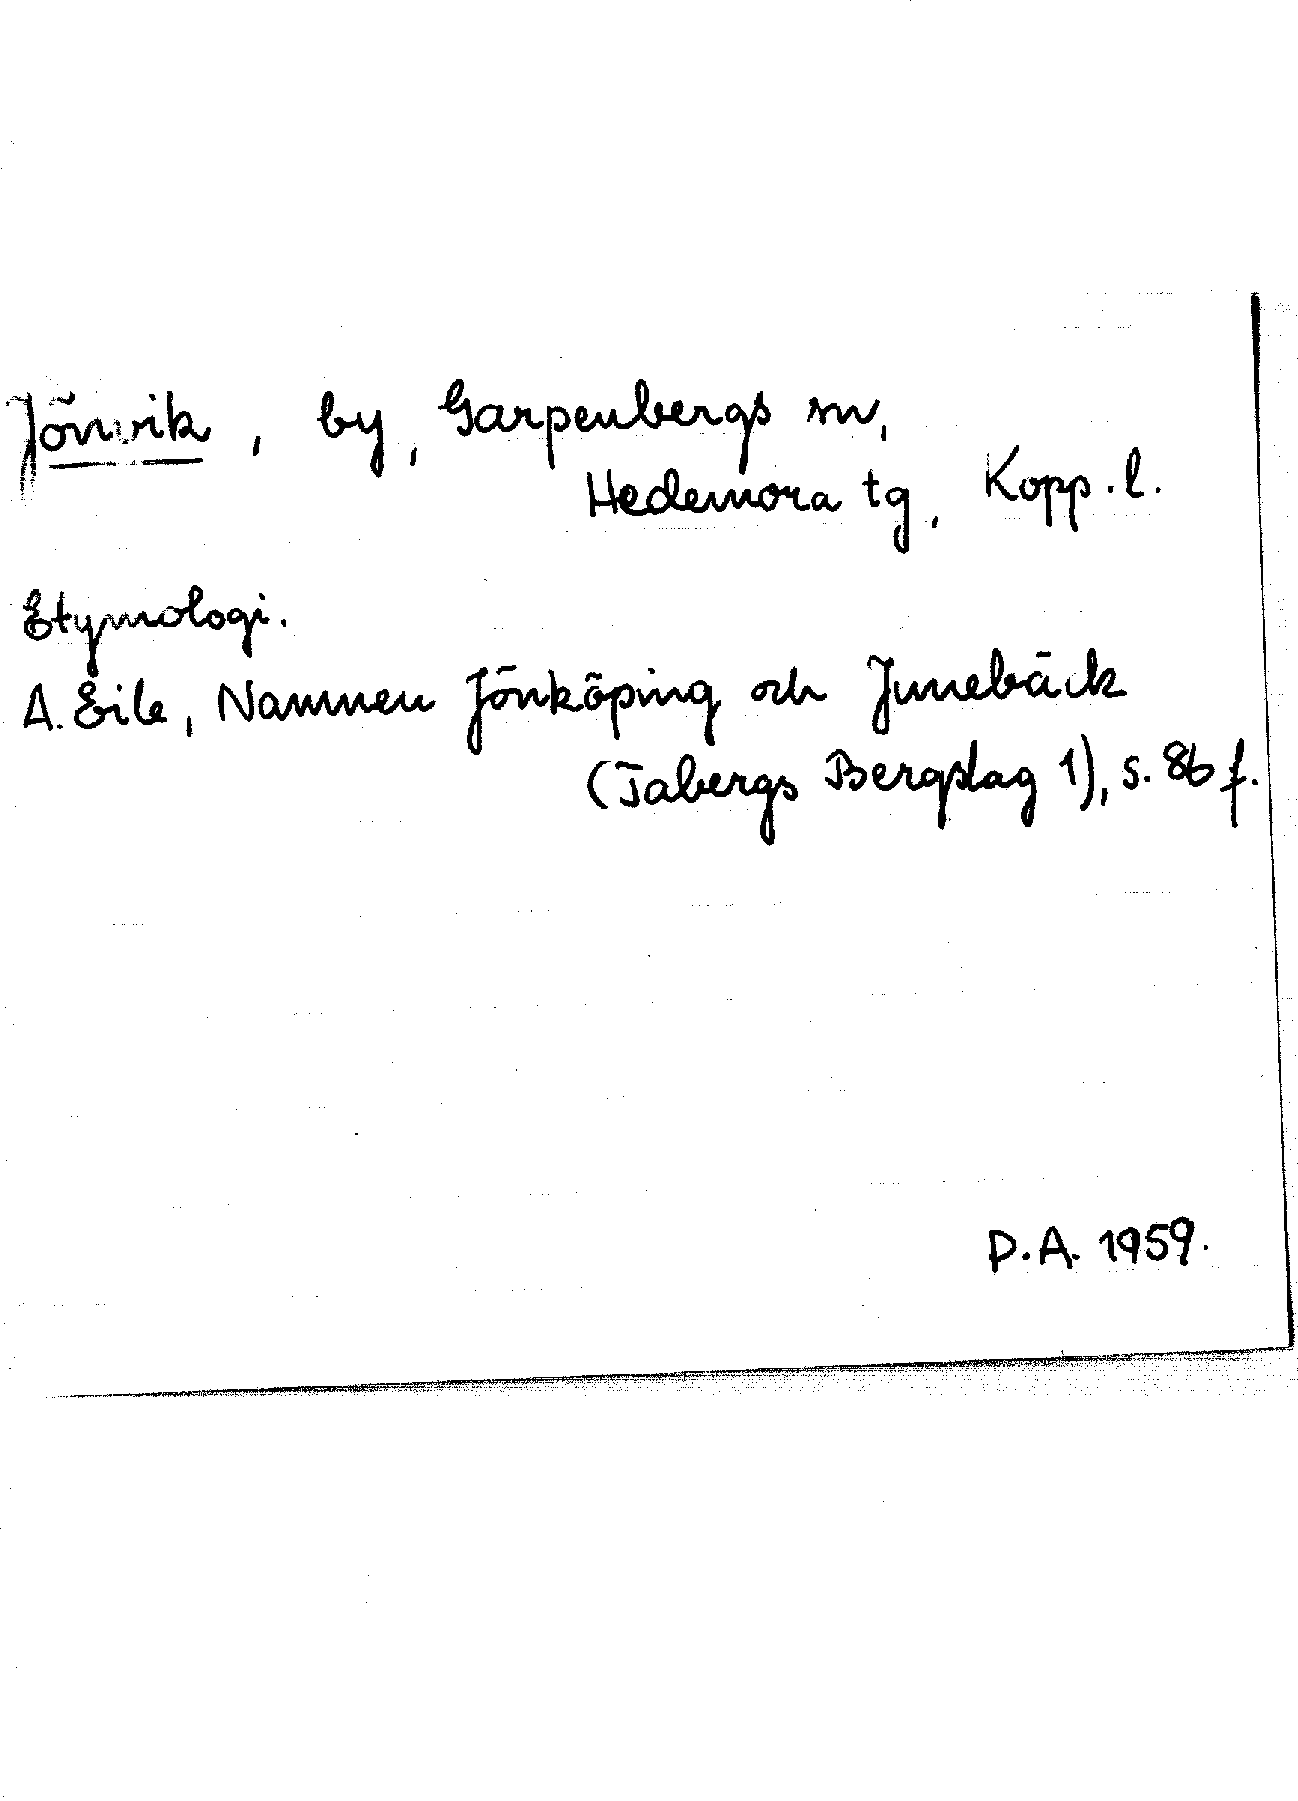 Jönvik, by, Garpenbergs sn,
Hedemora tg, Kopp.l.
Etymologi.
A. Eile, Namnen Jönköping och Junebäck
(Tabergs Bergslag 1), s. 86 f.
D.A. 1959.